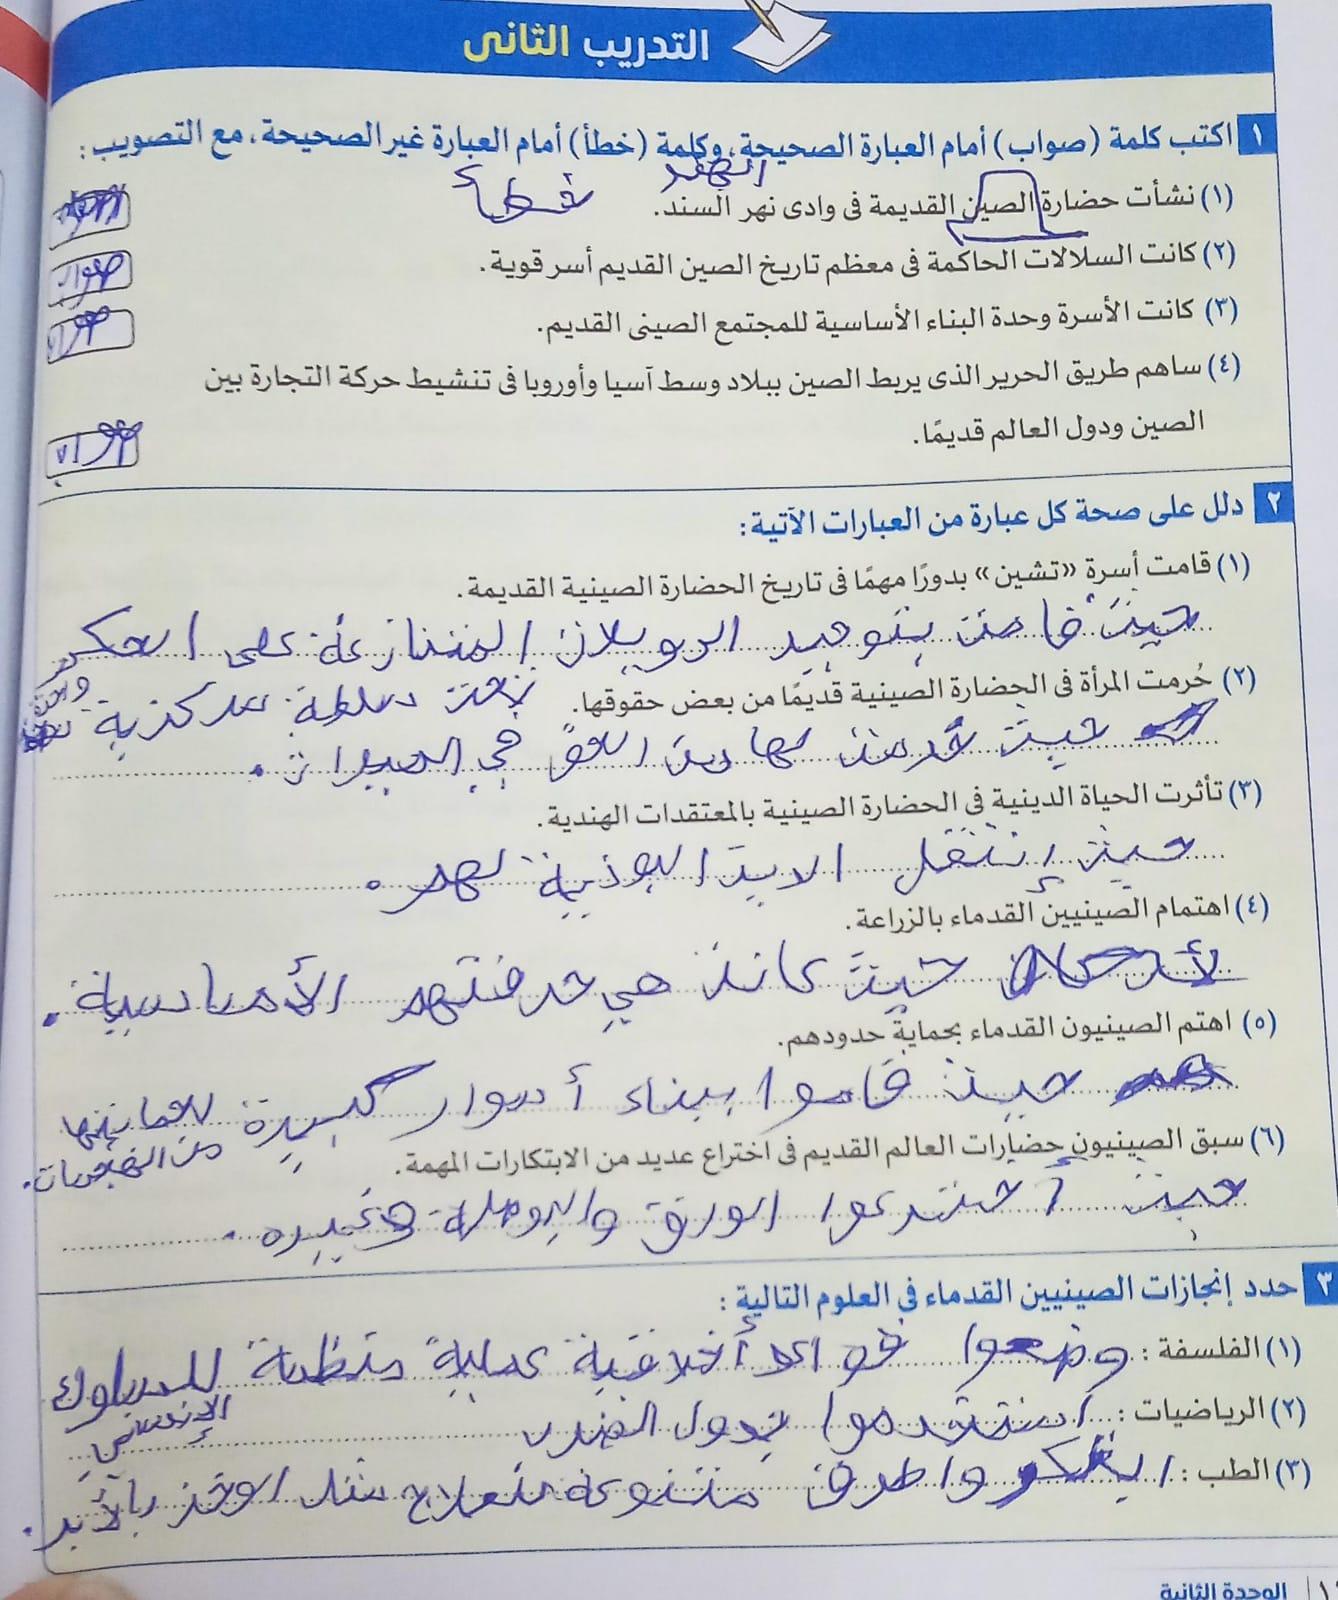 التدريب الثانى
١ اكتب كلمة (صواب) أمام العبارة الصحيحة، وكلمة (خطأ) أمام العبارة غير الصحيحة، مع التصويب :
الهند
(١) نشأت حضارة الصين القديمة فى وادى نهر السند. خطأ
(٢) كانت السلالات الحاكمة فى معظم تاريخ الصين القديم أسر قوية. صواب
(٣) كانت الأسرة وحدة البناء الأساسية للمجتمع الصينى القديم. صواب
(٤) ساهم طريق الحرير الذى يربط الصين ببلاد وسط آسيا وأوروبا فى تنشيط حركة التجارة بين
الصين ودول العالم قديمًا. صواب
٢ دلل على صحة كل عبارة من العبارات الآتية :
(١) قامت أسرة «تشين» بدورًا مهمًا فى تاريخ الحضارة الصينية القديمة.
حيث قامت بتوحيد الدويلات المتنازعة على الحكم
تحت سلطة مركزية
(٢) حُرمت المرأة فى الحضارة الصينية قديمًا من بعض حقوقها.
حيث حرمت لها من الحق في الميراث .
(٣) تأثرت الحياة الدينية فى الحضارة الصينية بالمعتقدات الهندية.
حيث إنتقل البوذية لهم .
(٤) اهتمام الصينيين القدماء بالزراعة.
حيث كانت هي حرفتهم الأساسية .
(٥) اهتم الصينيون القدماء بحماية حدودهم.
حيث قاموا ببناء أسوار كبيرة لحمايتها
من الهجمات .
(٦) سبق الصينيون حضارات العالم القديم فى اختراع عديد من الابتكارات المهمة.
حيث أخترعوا الورق والبوصلة وغيره .
٣ حدد إنجازات الصينيين القدماء فى العلوم التالية :
(١) الفلسفة : وضعوا قواعد أخلاقية عملية منظمة للسلوك
الإنساني
(٢) الرياضيات : استخدموا جدول الضرب
(٣) الطب : ابتكروا طرق متنوعة للعلاج مثل الوخز بالأبر .
الوحدة الثانية